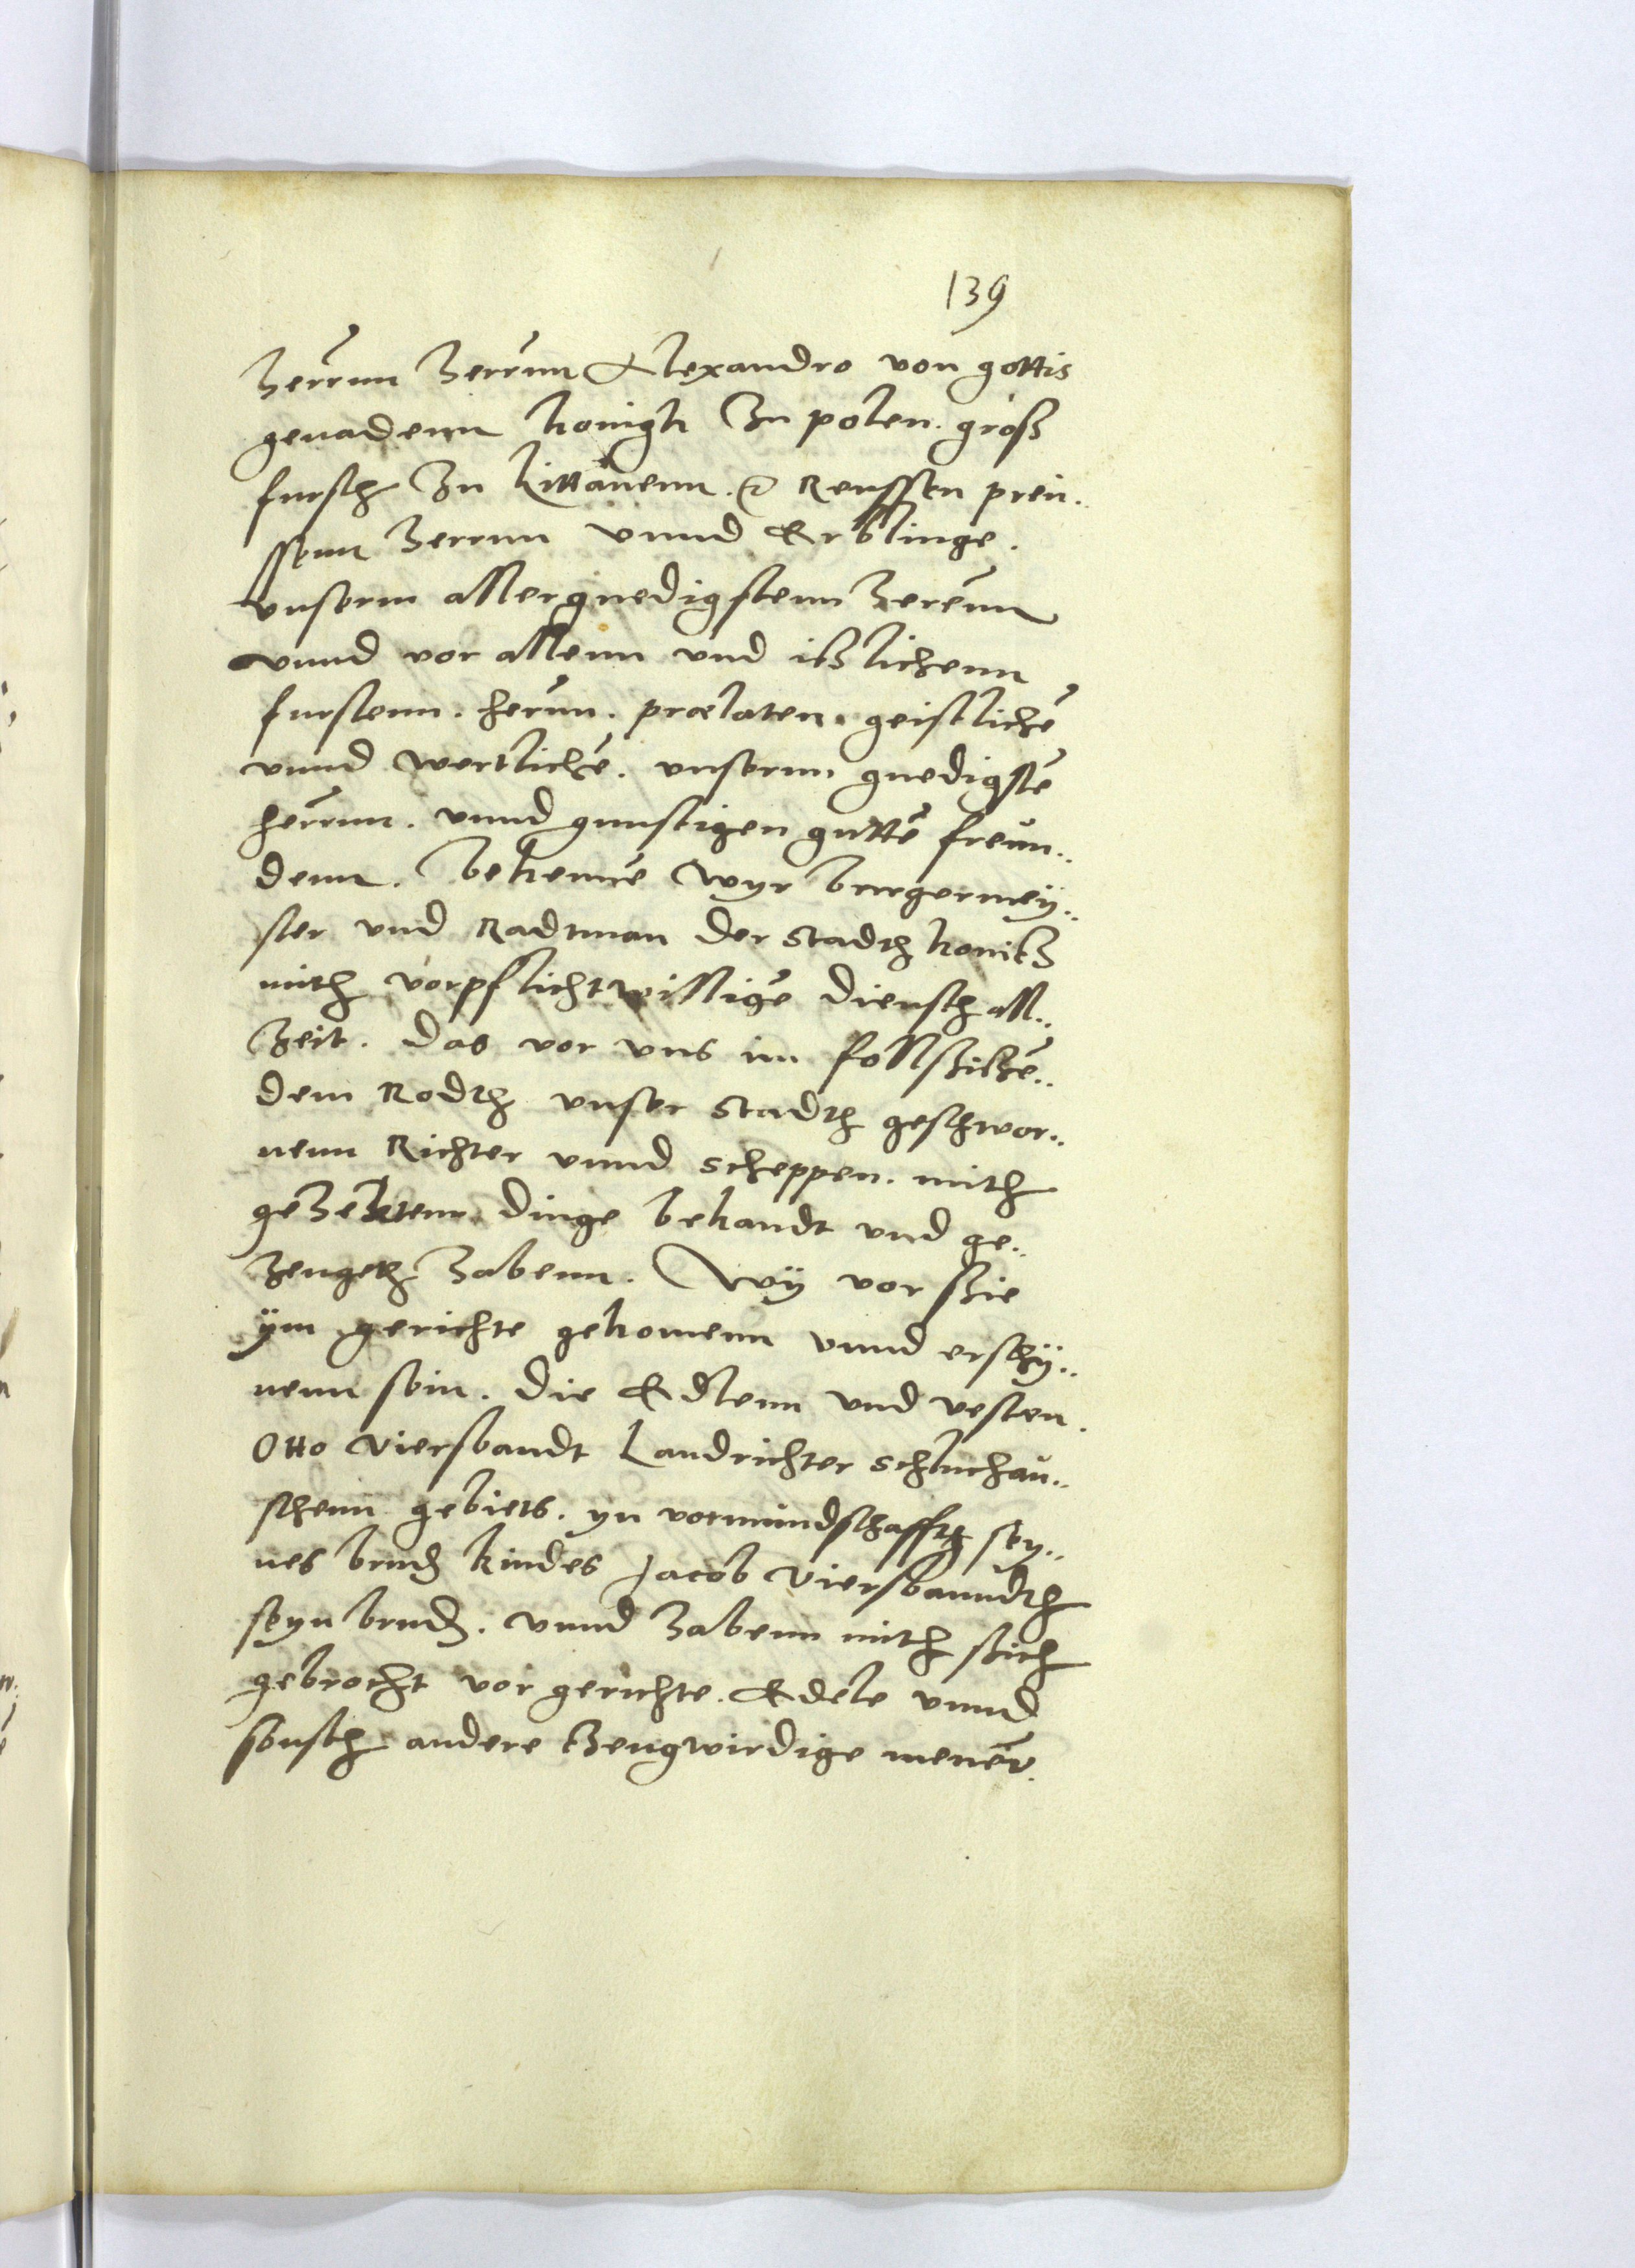 139
Herrnn Herrnn Alexandro von gottis
genadenn konigk Zu polen. groß
fursth Zu Littauenn. &c Reussen preu..
ssenn Herrnn vnnd Erblinge.
vnserm allergnedigstenn Herenn
vnnd vor allenn vnd ißlichenn
furstenn. herrnn. prælaten. geistlichē
vnnd wertlichē. vnsernn gnedigstē
herrnn. vnnd gunstigen guttē freun..
denn. bekennē wyr burgermeÿ..
ster vnd Radtman der Stadth konitz
mith vorpflicht willigē diensth all..
Zeit. das vor vns im follsitzē..
dem Rodth vnser Stadth geschwor..
nenn Richter vnnd scheppen. mith
geHektenn dinge bekandt vnd ge..
Zeugeth Habenn. Wÿ vor sie
ÿm gerichte gekomenn vnnd erschÿ..
nenn sein. die Edlenn vnd vesten.
Otto viersbandt Landrichter Schluchau..
schenn gebiets. yn vormundschafftt sey..
nes brud kindes Jacob viersbanndth
seyn brud. vnnd Habenn mith sich
gebrocht vor gerichte. Edele vnnd
sonsth andere Zeugwirdige menēr.